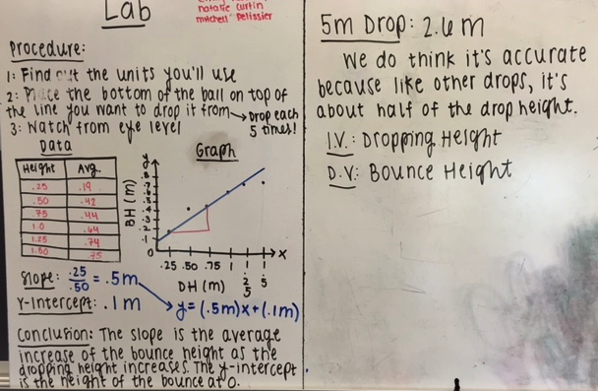 Lab
natalie curtin
mitchell pelissier
Procedure:
1: Find out the units you'll use
2: Place the bottom of the ball on top of
the line you want to drop it from → Drop each
5 times!
3: Watch from eye level
Data
Height Avg.
.25 .19
.50 .42
.75 .44
1.0 .64
1.25 .74
1.50 .75
Graph
y
BH (m)
x
.25 .50 .75 1
DH (m)
Slope: .25/.50 = .5m
Y-Intercept: .1m
y=(.5m)x+(.1m)
Conclusion: The slope is the average
increase of the bounce height as the
dropping height increases. The y-intercept
is the height of the bounce at 0.
5m Drop: 2.6m
We do think it's accurate
because like other drops, it's
about half of the drop height.
I.V.: Dropping Height
D.V.: Bounce Height